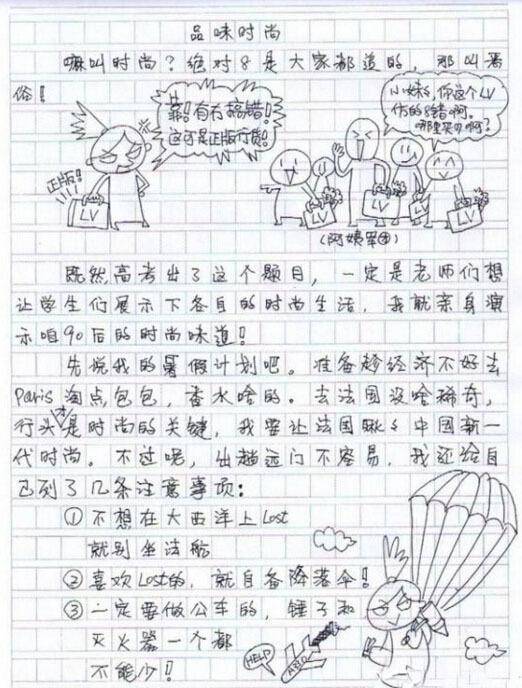 品味时尚
嘛叫时尚？绝对8是大家都道的，那叫恶
俗！
靠！有冇搞错！
这可是正版行货！
小妹，你这个LV
仿的8错啊。
哪里买的啊？
正版！
LV
LV
LV
LV
(阿姨军团)
既然高考出了这个题目，一定是老师们想
让学生们展示下各自的时尚生活，我就亲身演
示咱90后的时尚味道！
先说我的暑假计划吧。准备趁经济不好去
Paris淘点包包，香水啥的。去法国没啥稀奇，
行头才是时尚的关键，我要让法国瞅瞅中国新一
代时尚。不过呢，出趟远门不容易，我还给自
己列了几条注意事项：
①不想在大西洋上Lost
就别坐法航
②喜欢Lost的，就自备降落伞！
③一定要做公车的，锤子和
灭火器一个都
不能少！
HELP